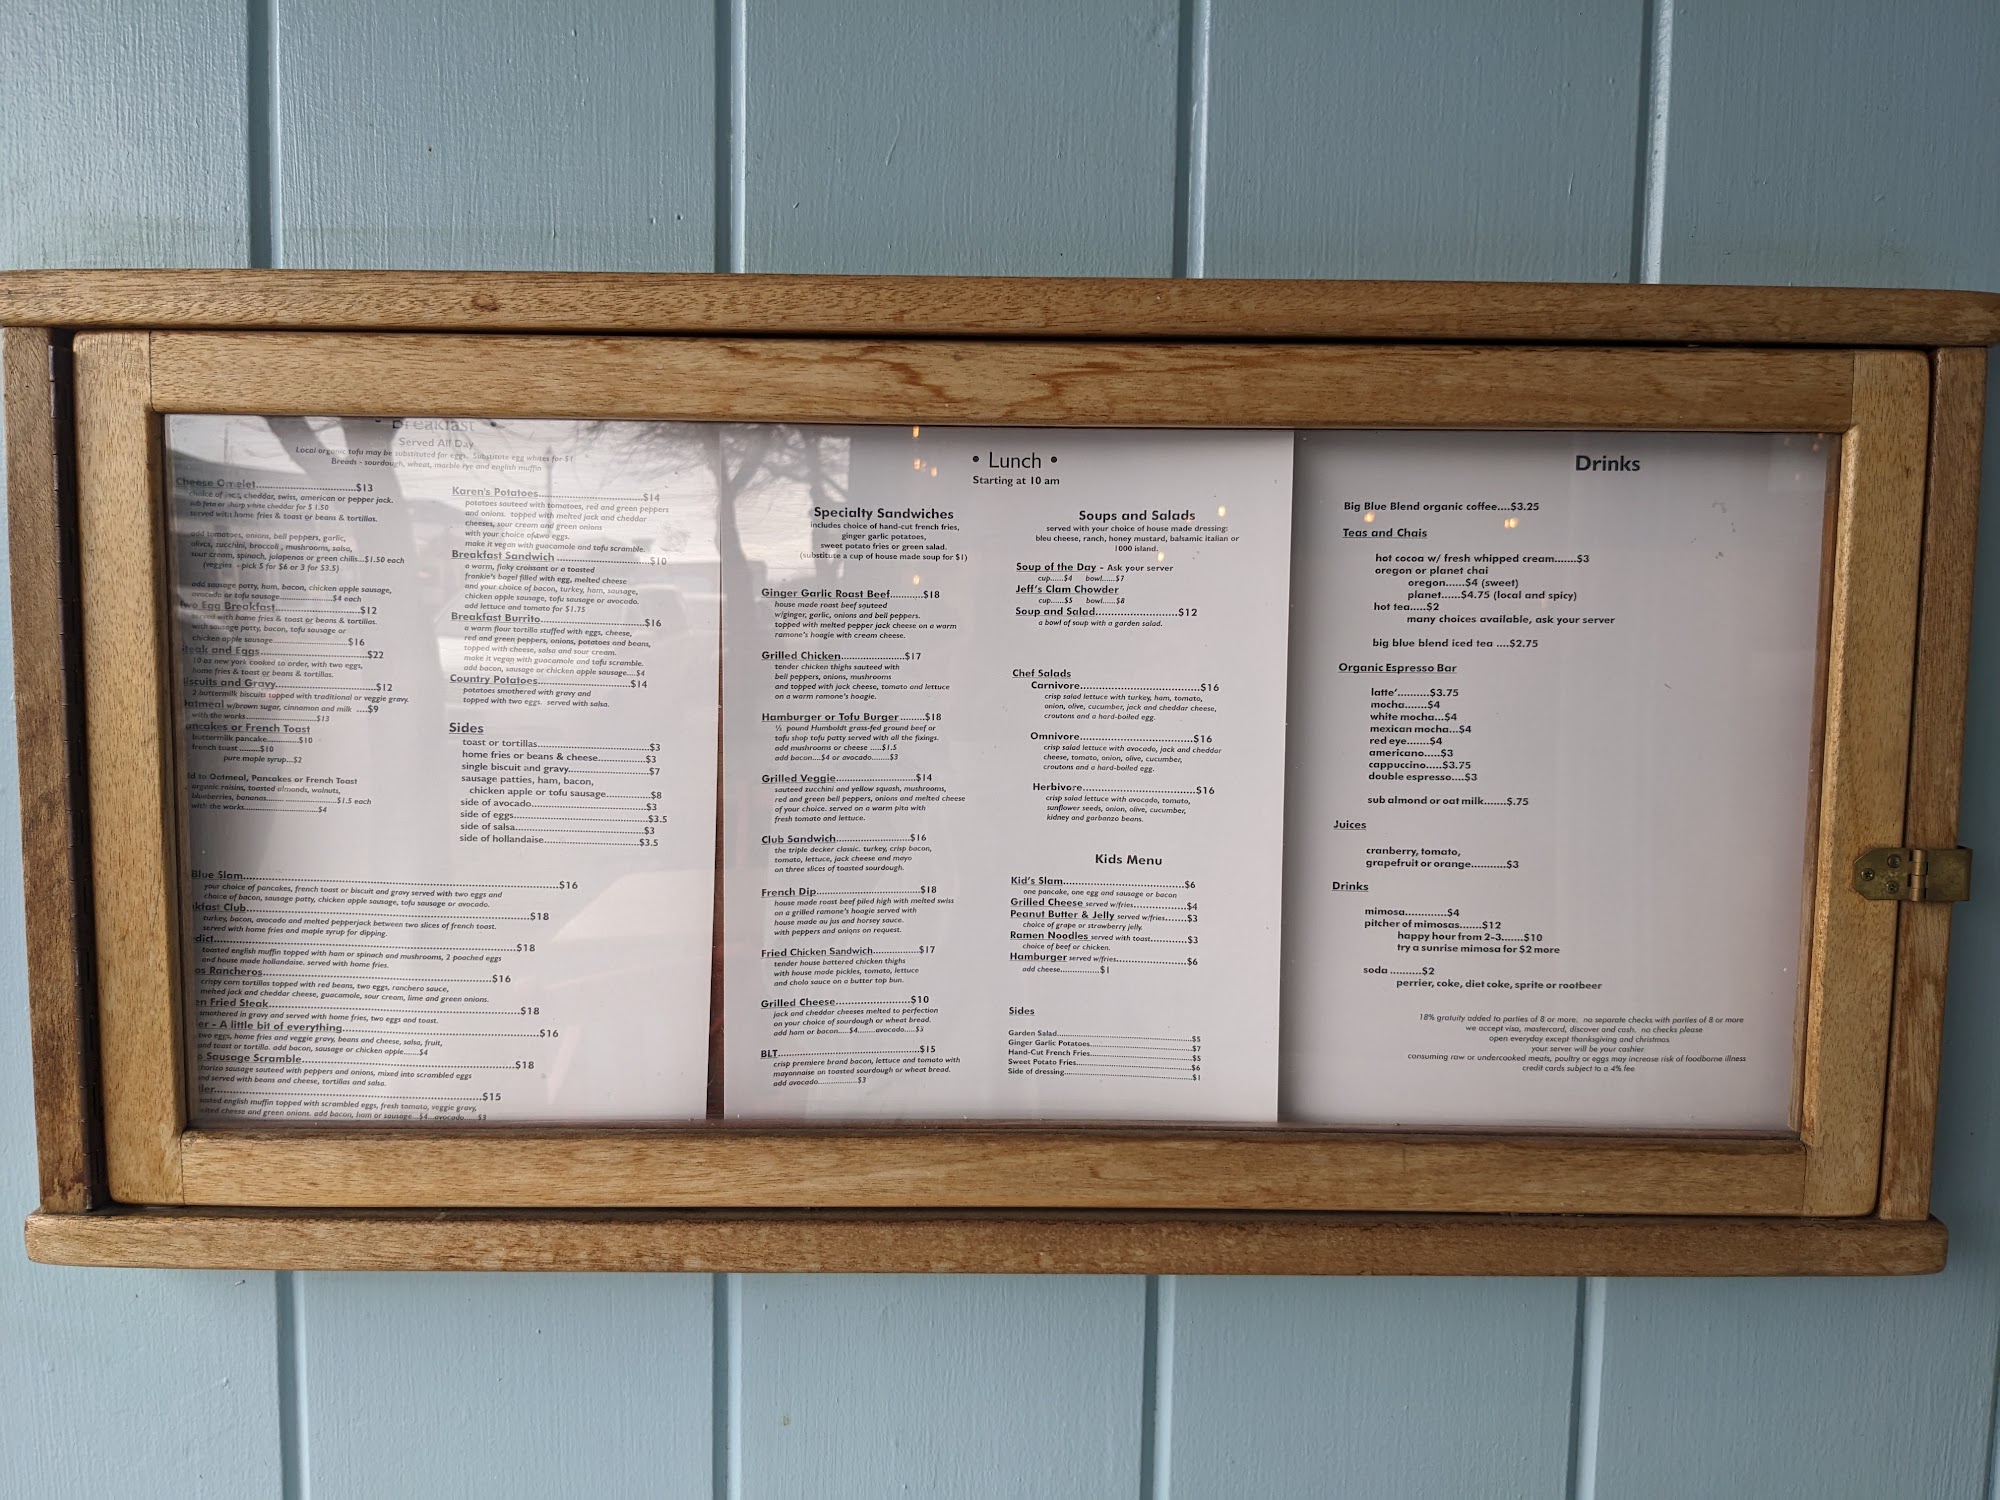 Breakfast
Served All Day
Local organic tofu may be substituted for eggs. Substitute egg whites for $1
Breads - sourdough, wheat, marble rye and english muffin
Cheese Omelet..........$13
choice of jack, cheddar, swiss, american or pepper jack.
sub feta or sharp white cheddar for $ 1.50
served with home fries & toast or beans & tortillas.
add tomatoes, onions, bell peppers, garlic,
olives, zucchini, broccoli, mushrooms, salsa,
sour cream, spinach, jalapenos or green chilis...$1.50 each
(veggies - pick 5 for $6 or 3 for $3.5)
add sausage patty, ham, bacon, chicken apple sausage,
avocado or tofu sausage..........$4 each
Two Egg Breakfast..........$12
served with home fries & toast or beans & tortillas.
with sausage patty, bacon, tofu sausage or
chicken apple sausage..........$16
Steak and Eggs..........$22
10 oz new york cooked to order, with two eggs,
home fries & toast or beans & tortillas.
Biscuits and Gravy..........$12
2 buttermilk biscuits topped with traditional or veggie gravy.
Oatmeal w/brown sugar, cinnamon and milk ....$9
with the works..........$13
Pancakes or French Toast
buttermilk pancake..........$10
french toast........$10
pure maple syrup...$2
dd to Oatmeal, Pancakes or French Toast
organic raisins, toasted almonds, walnuts,
blueberries, bananas..........$1.5 each
with the works..........$4
Karen's Potatoes..........$14
potatoes sauteed with tomatoes, red and green peppers
and onions. topped with melted jack and cheddar
cheeses, sour cream and green onions
with your choice of two eggs.
make it vegan with guacamole and tofu scramble.
Breakfast Sandwich..........$10
a warm, flaky croissant or a toasted
frankie's bagel filled with egg, melted cheese
and your choice of bacon, turkey, ham, sausage,
chicken apple sausage, tofu sausage or avocado.
add lettuce and tomato for $1.75
Breakfast Burrito..........$16
a warm flour tortilla stuffed with eggs, cheese,
red and green peppers, onions, potatoes and beans,
topped with cheese, salsa and sour cream.
make it vegan with guacamole and tofu scramble.
add bacon, sausage or chicken apple sausage....$4
Country Potatoes..........$14
potatoes smothered with gravy and
topped with two eggs. served with salsa.
Sides
toast or tortillas..........$3
home fries or beans & cheese..........$3
single biscuit and gravy..........$7
sausage patties, ham, bacon,
chicken apple or tofu sausage..........$8
side of avocado..........$3
side of eggs..........$3.5
side of salsa..........$3
side of hollandaise..........$3.5
Blue Slam..........$16
your choice of pancakes, french toast or biscuit and gravy served with two eggs and
choice of bacon, sausage patty, chicken apple sausage, tofu sausage or avocado.
kfast Club..........$18
turkey, bacon, avocado and melted pepperjack between two slices of french toast.
served with home fries and maple syrup for dipping.
dict..........$18
toasted english muffin topped with ham or spinach and mushrooms, 2 poached eggs
and house made hollandaise. served with home fries.
os Rancheros..........$16
crispy corn tortillas topped with red beans, two eggs, ranchero sauce,
melted jack and cheddar cheese, guacamole, sour cream, lime and green onions.
en Fried Steak..........$18
smothered in gravy and served with home fries, two eggs and toast.
er - A little bit of everything..........$16
two eggs, home fries and veggie gravy, beans and cheese, salsa, fruit,
and toast or tortilla. add bacon, sausage or chicken apple.......$4
o Sausage Scramble..........$18
chorizo sausage sauteed with peppers and onions, mixed into scrambled eggs
and served with beans and cheese, tortillas and salsa.
ler..........$15
toasted english muffin topped with scrambled eggs, fresh tomato, veggie gravy,
melted cheese and green onions. add bacon, ham or sausage...$4...avocado.....$3
• Lunch •
Starting at 10 am
Specialty Sandwiches
includes choice of hand-cut french fries,
ginger garlic potatoes,
sweet potato fries or green salad.
(substitute a cup of house made soup for $1)
Ginger Garlic Roast Beef..........$18
house made roast beef squteed
w/ginger, garlic, onions and bell peppers.
topped with melted pepper jack cheese on a warm
ramone's hoagie with cream cheese.
Grilled Chicken..........$17
tender chicken thighs sauteed with
bell peppers, onions, mushrooms
and topped with jack cheese, tomato and lettuce
on a warm ramone's hoagie.
Hamburger or Tofu Burger ........$18
⅓ pound Humboldt grass-fed ground beef or
tofu shop tofu patty served with all the fixings.
add mushrooms or cheese .....$1.5
add bacon....$4 or avocado.......$3
Grilled Veggie..........$14
sauteed zucchini and yellow squash, mushrooms,
red and green bell peppers, onions and melted cheese
of your choice. served on a warm pita with
fresh tomato and lettuce.
Club Sandwich..........$16
the triple decker classic. turkey, crisp bacon,
tomato, lettuce, jack cheese and mayo
on three slices of toasted sourdough.
French Dip..........$18
house made roast beef piled high with melted swiss
on a grilled ramone's hoagie served with
house made au jus and horsey sauce.
with peppers and onions on request.
Fried Chicken Sandwich..........$17
tender house battered chicken thighs
with house made pickles, tomato, lettuce
and cholo sauce on a butter top bun.
Grilled Cheese..........$10
jack and cheddar cheeses melted to perfection
on your choice of sourdough or wheat bread.
add ham or bacon.....$4........avocado...$3
BLT..........$15
crisp premiere brand bacon, lettuce and tomato with
mayonnaise on toasted sourdough or wheat bread.
add avocado..........$3
Soups and Salads
served with your choice of house made dressing:
bleu cheese, ranch, honey mustard, balsamic italian or
1000 island.
Soup of the Day - Ask your server
cup......$4 bowl......$7
Jeff's Clam Chowder
cup......$5 bowl......$8
Soup and Salad..........$12
a bowl of soup with a garden salad.
Chef Salads
Carnivore..........$16
crisp salad lettuce with turkey, ham, tomato,
onion, olive, cucumber, jack and cheddar cheese,
croutons and a hard-boiled egg.
Omnivore..........$16
crisp salad lettuce with avocado, jack and cheddar
cheese, tomato, onion, olive, cucumber,
croutons and a hard-boiled egg.
Herbivore..........$16
crisp salad lettuce with avocado, tomato,
sunflower seeds, onion, olive, cucumber,
kidney and garbanzo beans.
Kids Menu
Kid's Slam..........$6
one pancake, one egg and sausage or bacon
Grilled Cheese served w/fries..........$4
Peanut Butter & Jelly served w/fries......$3
choice of grape or strawberry jelly.
Ramen Noodles served with toast..........$3
choice of beef or chicken.
Hamburger served w/fries..........$6
add cheese..........$1
Sides
Garden Salad..........$5
Ginger Garlic Potatoes..........$7
Hand-Cut French Fries..........$5
Sweet Potato Fries..........$6
Side of dressing..........$1
Drinks
Big Blue Blend organic coffee....$3.25
Teas and Chais
hot cocoa w/ fresh whipped cream.......$3
oregon or planet chai
oregon......$4 (sweet)
planet......$4.75 (local and spicy)
hot tea.....$2
many choices available, ask your server
big blue blend iced tea ....$2.75
Organic Espresso Bar
latte'..........$3.75
mocha.......$4
white mocha...$4
mexican mocha...$4
red eye.......$4
americano.....$3
cappuccino.....$3.75
double espresso....$3
sub almond or oat milk.......$.75
Juices
cranberry, tomato,
grapefruit or orange..........$3
Drinks
mimosa.............$4
pitcher of mimosas.......$12
happy hour from 2-3......$10
try a sunrise mimosa for $2 more
soda ..........$2
perrier, coke, diet coke, sprite or rootbeer
18% gratuity added to parties of 8 or more. no separate checks with parties of 8 or more
we accept visa, mastercard, discover and cash. no checks please
open everyday except thanksgiving and christmas
your server will be your cashier
consuming raw or undercooked meats, poultry or eggs may increase risk of foodborne illness
credit cards subject to a 4% fee